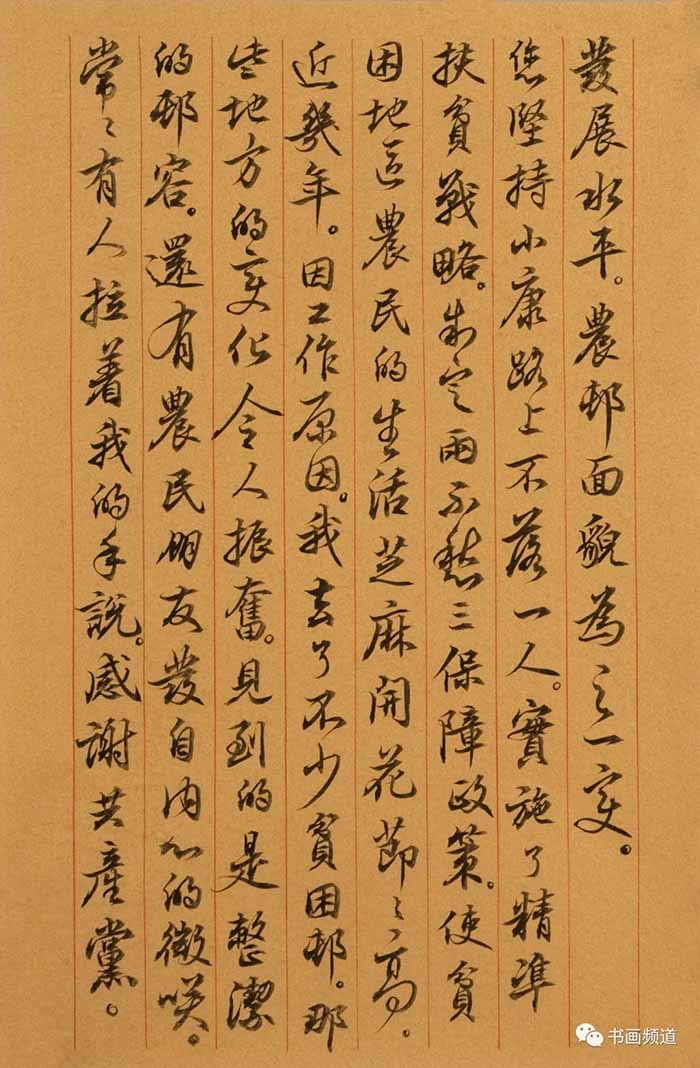 發展水平。農邨面貌為之一变。
您堅持小康路上不落一人。實施了精準
扶貧戰略。制定兩不愁三保障政策。使貧
困地區農民的生活芝麻開花節〻高。
近幾年。因工作原因。我去了不少貧困邨。那
些地方的变化令人振奮。見到的是整潔
的邨容。還有農民朋友發自内心的微笑。
常〻有人拉着我的手說。感謝共產黨。
书画频道